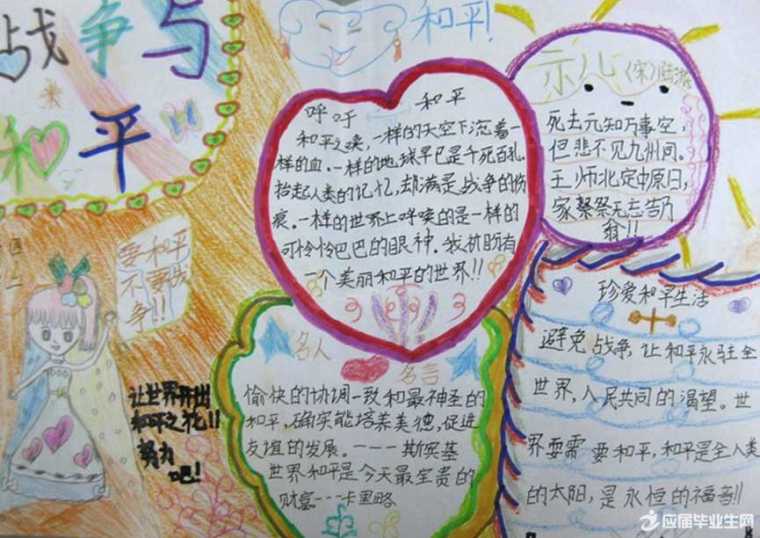 战争与
和平
和平!
呼吁 和平
和平之唤,一样的天空下流着一
样的血.一样的地球早已是千死百孔.
抬起人类的记忆,却满是战争的伤
痕。一样的世界上呼唤的是一样的
可怜怜巴巴的眼神.我祈盼有
一个美丽和平的世界!!
示儿(宋)陆游
死去元知万事空,
但悲不见九州同。
王师北定中原日,
家祭祭无忘告乃
翁!!
要和平
不要战
争!!
让世界开出
和平之花!!
努力
吧!
名人 名言
愉快的协调一致和最神圣的
和平,确实能培养美德,促进
友谊的发展。----斯宾基
世界和平是今天最宝贵的
财富---卡里略
珍爱和平生活
避免战争,让和平永驻全
世界,人民共同的渴望。世
界要需要和平,和平是全人类
的太阳,是永恒的福音!!
应届毕业生网